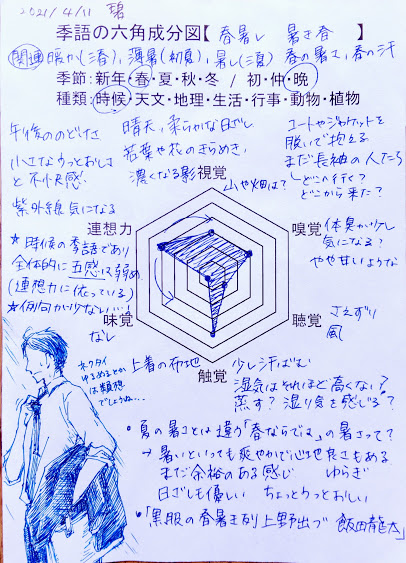 2021/4/11 碧
季語の六角成分図【春暑し 暑き春】
関連 暖か(三春)、薄暑(初夏)、暑し(三夏) 春の暑さ、春の汗
季節:新年・春・夏・秋・冬 / 初・仲・晩
種類:時候・天文・地理・生活・行事・動物・植物
午後ののどけさ
小さなうっとおしさ
と不快感
紫外線気になる
晴天、柔らかな日ざし
若葉や花のきらめき、
濃くなる影
コートやジャケットを
脱いで抱える
まだ長袖の人たち
どこへ行く?
どこから来た?
視覚
山や畑は?
連想力
嗅覚
体臭が少し
気になる?
やや甘いような
★時候の季語であり
全体的に五感は弱め
(連想力に依っている)
★例句が少ない…!
味覚
なし
聴覚
さえずり
風
触覚
上着の布地
少し汗ばむ
湿気はそれほど高くない?
蒸す?湿り気を感じる?
ネクタイ
ゆるめるとか
は類想
でしょうね…
・夏の暑さとは違う「春ならでは」の暑さって?
→暑いといっても爽やかで心地良さもある
まだ余裕のある感じ ゆらぎ
日ざしも優しい ちょっとうっとおしい
・「黒服の春暑き列上野出づ 飯田龍太」